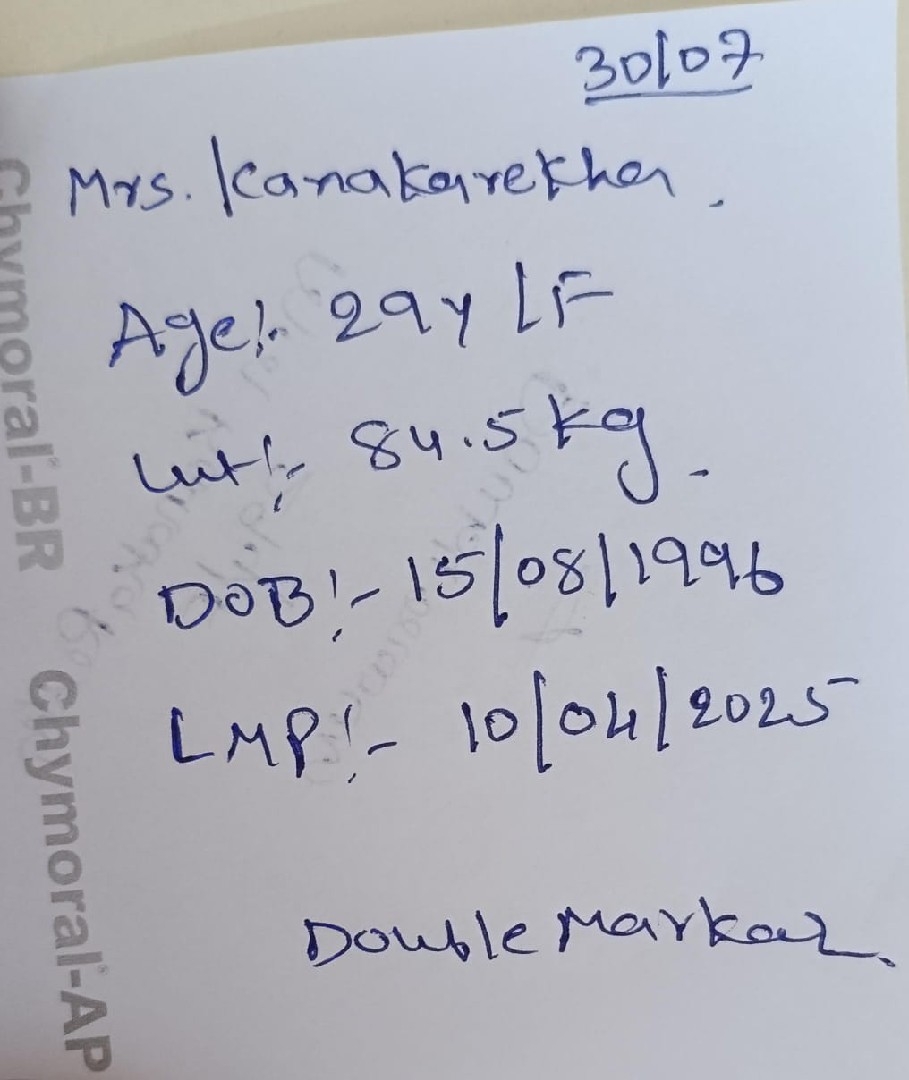 30/07
Mrs. Kanakarekha.
Age:- 29y/F
Wt:- 84.5kg.
DOB:- 15/08/1996
LMP:- 10/04/2025
Double Markar.
Chymoral-BR Chymoral-AP